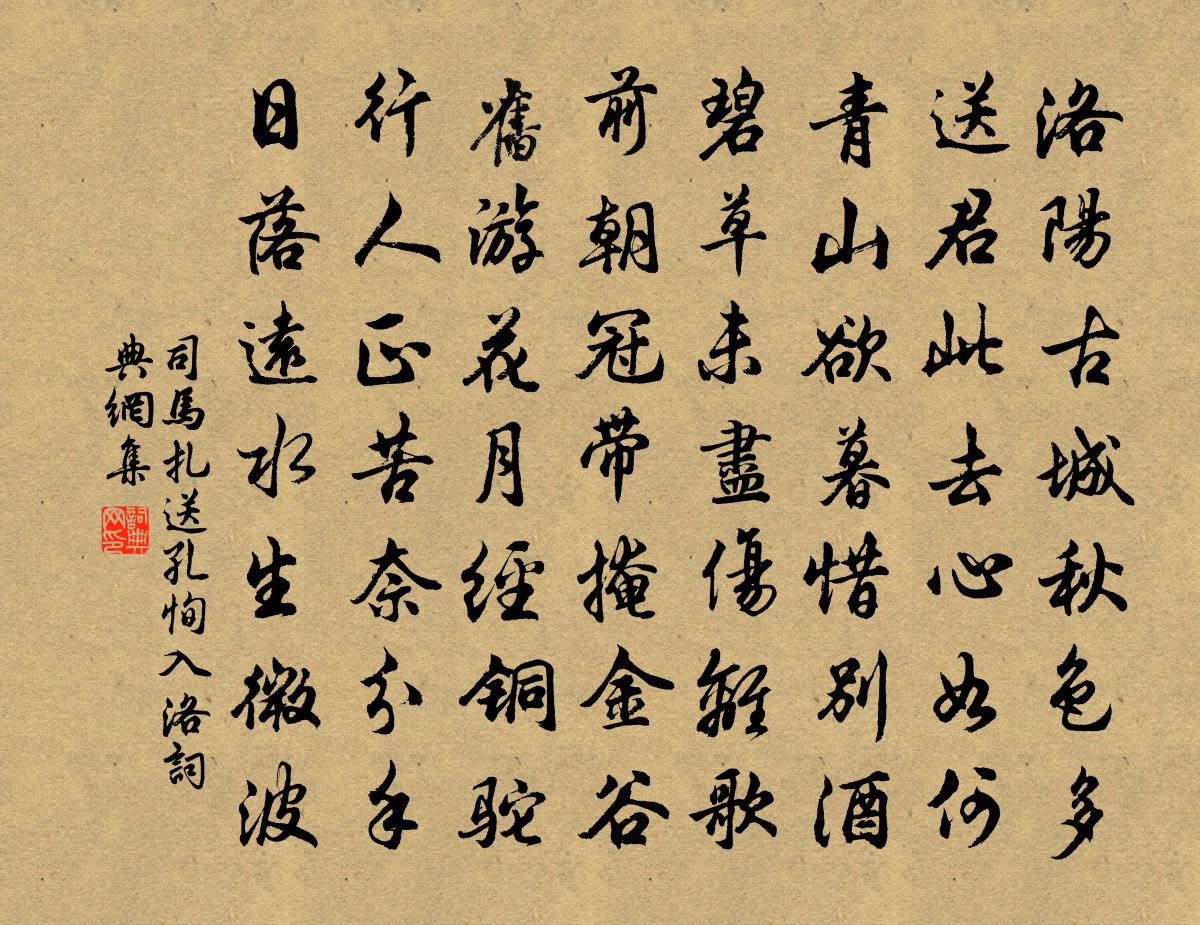 洛陽古城秋色多
送君此去心如何
青山欲暮惜別酒
碧草未盡傷離歌
前朝冠帶掩金谷
舊游花月經銅駝
行人正苦奈分手
日落遠水生微波
司馬扎送孔恂入洛詞
典網集
詞典
网印